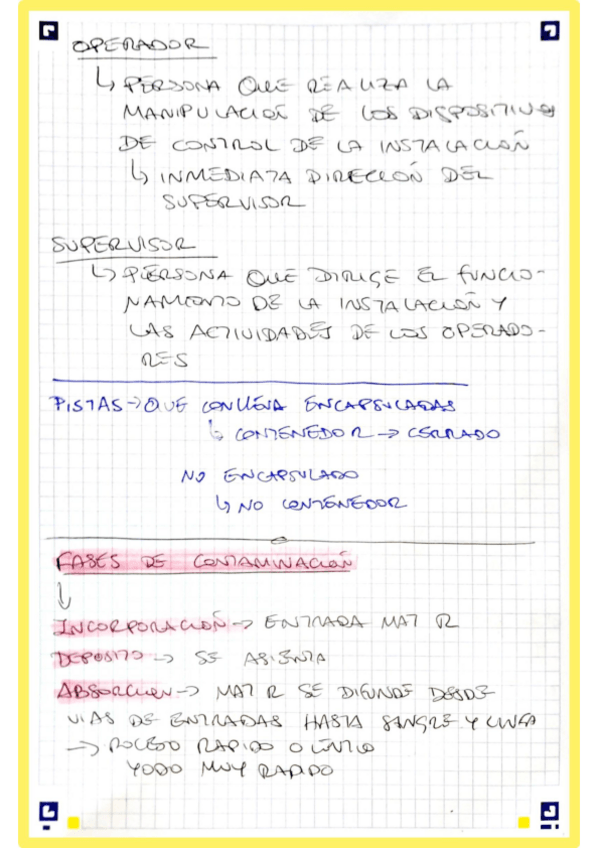 OPERADOR
↳ PERSONA QUE REALIZA LA
MANIPULACIÓN DE LOS DISPOSITIVOS
DE CONTROL DE LA INSTALACIÓN
↳ INMEDIATA DIRECCIÓN DEL
SUPERVISOR
SUPERVISOR
↳ PERSONA QUE DIRIGE EL FUNCIO-
NAMIENTO DE LA INSTALACIÓN Y
LAS ACTIVIDADES DE LOS OPERADO-
RES
PISTAS → QUE CONLLEVA ENCAPSULADAS
↳ CONTENEDOR → CERRADO
NO ENCAPSULADO
↳ NO CONTENEDOR
FASES DE CONTAMINACIÓN
↓
INCORPORACIÓN → ENTRADA MAT R
DEPOSITO → SE ASIENTA
ABSORCIÓN → MAT R SE DIFUNDE DESDE
VIAS DE ENTRADAS HASTA SANGRE Y LINFA
→ PROCESO RAPIDO O LENTO
YODO MUY RAPIDO